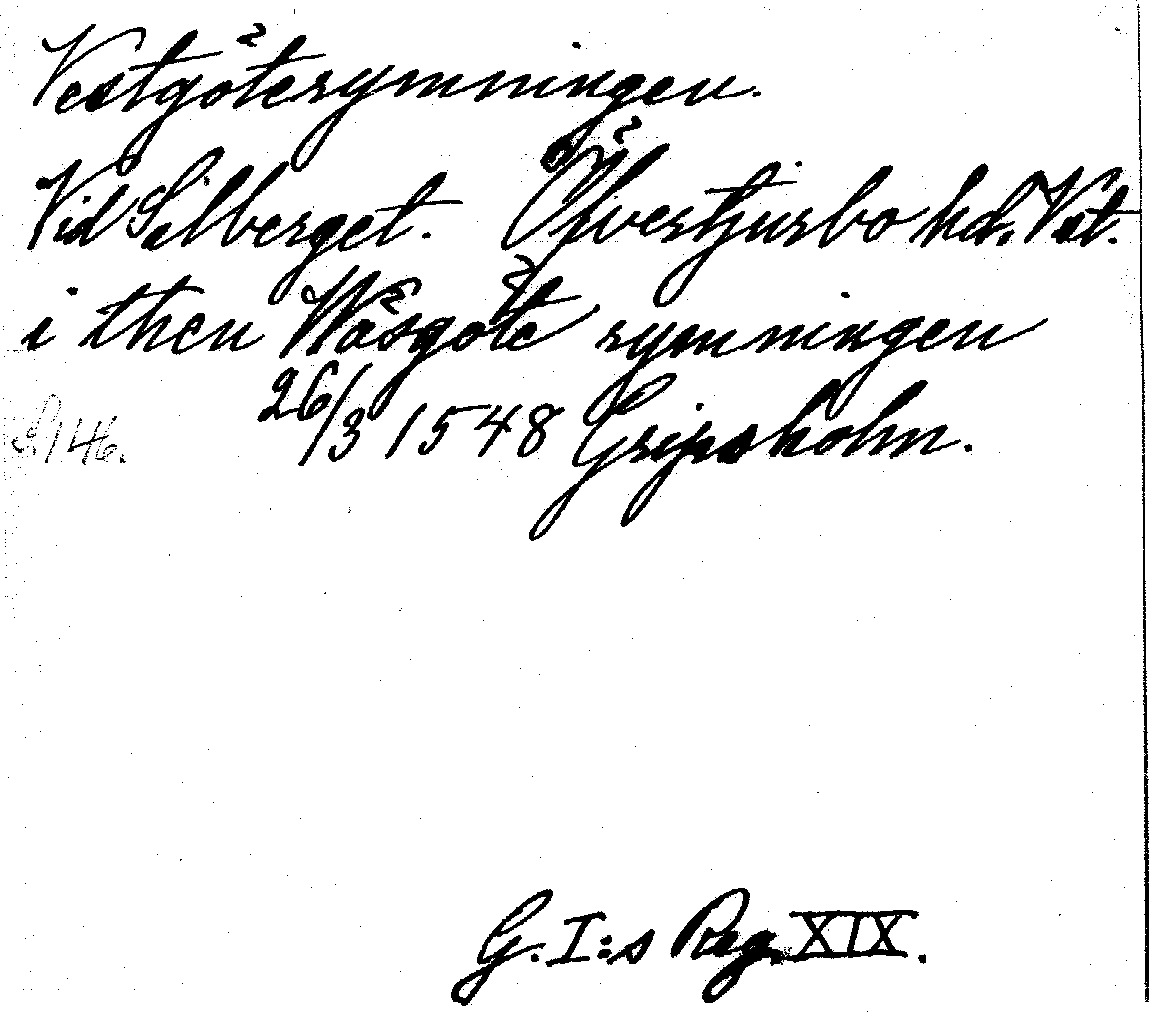 Vestgöterymningen.
Vid Silberget. Öfvertjurbo hd, Vst.
i then Wåsgöte rymningen
S. 146. 26/3 1548 Gripsholm.
G. I:s Reg. XIX.